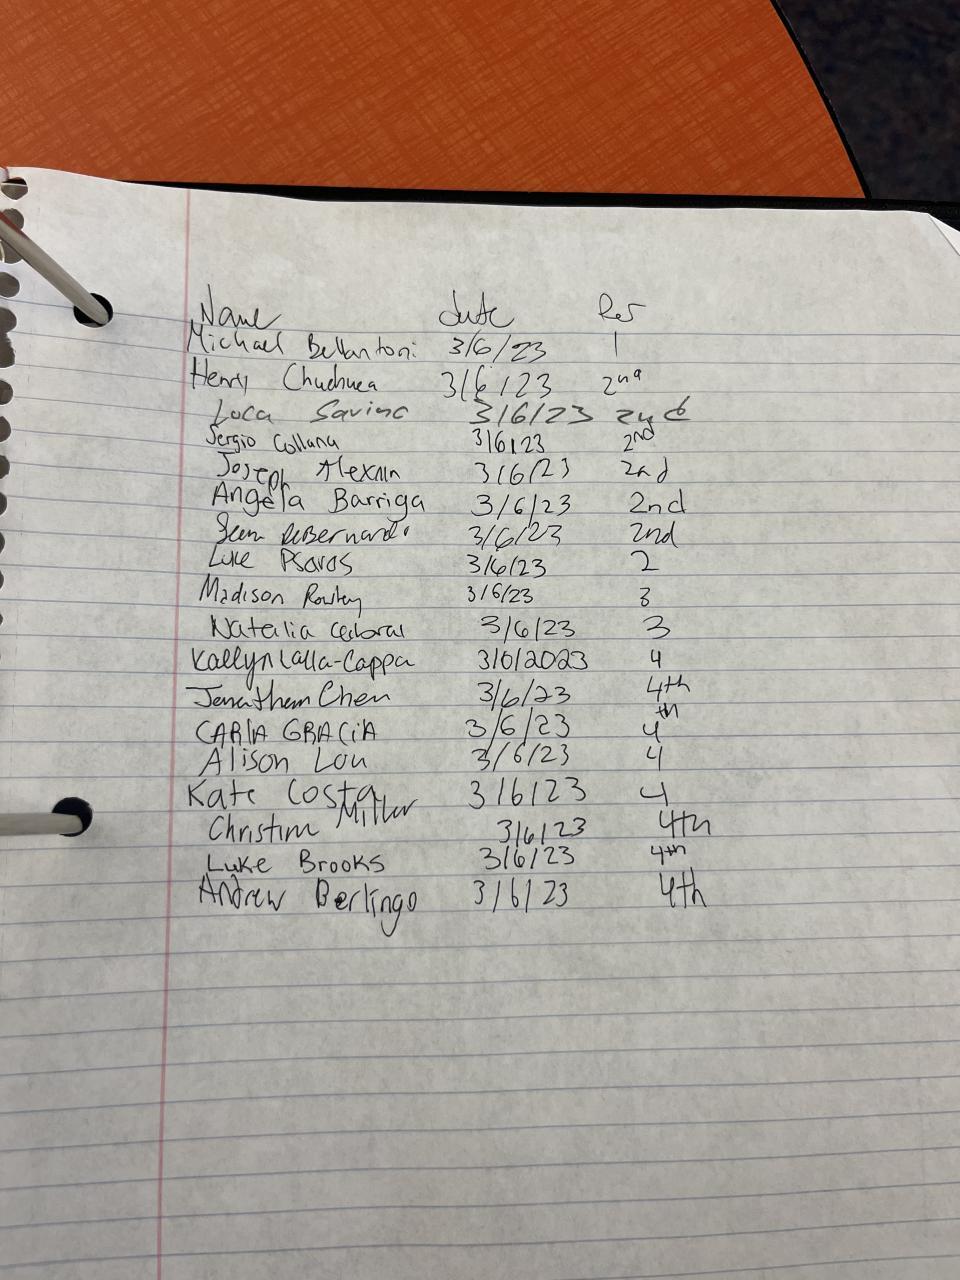 Name date Per
Michael Bellantoni 3/6/23 1
Henry 3/6/23 2nd
Luca Savino 3/6/23 2nd
Sergio Collana 3/6/23 2nd
Joseph 3/6/23 2nd
Angela Barriga 3/6/23 2nd
Sean DeBernardo 3/6/23 2nd
Luke Psaros 3/6/23 2
Madison 3/6/23 3
Natalia 3/6/23 3
Kaitlyn Lalla-Cappa 3/6/2023 4
Jonathan Chen 3/6/23 4th
CARlA GRACiA 3/6/23 4th
Alison Lou 3/6/23 4
Kate Costa 3/6/23 4
Miller 3/6/23 4th
Luke Brooks 3/6/23 4th
Andrew Berlingo 3/6/23 4th